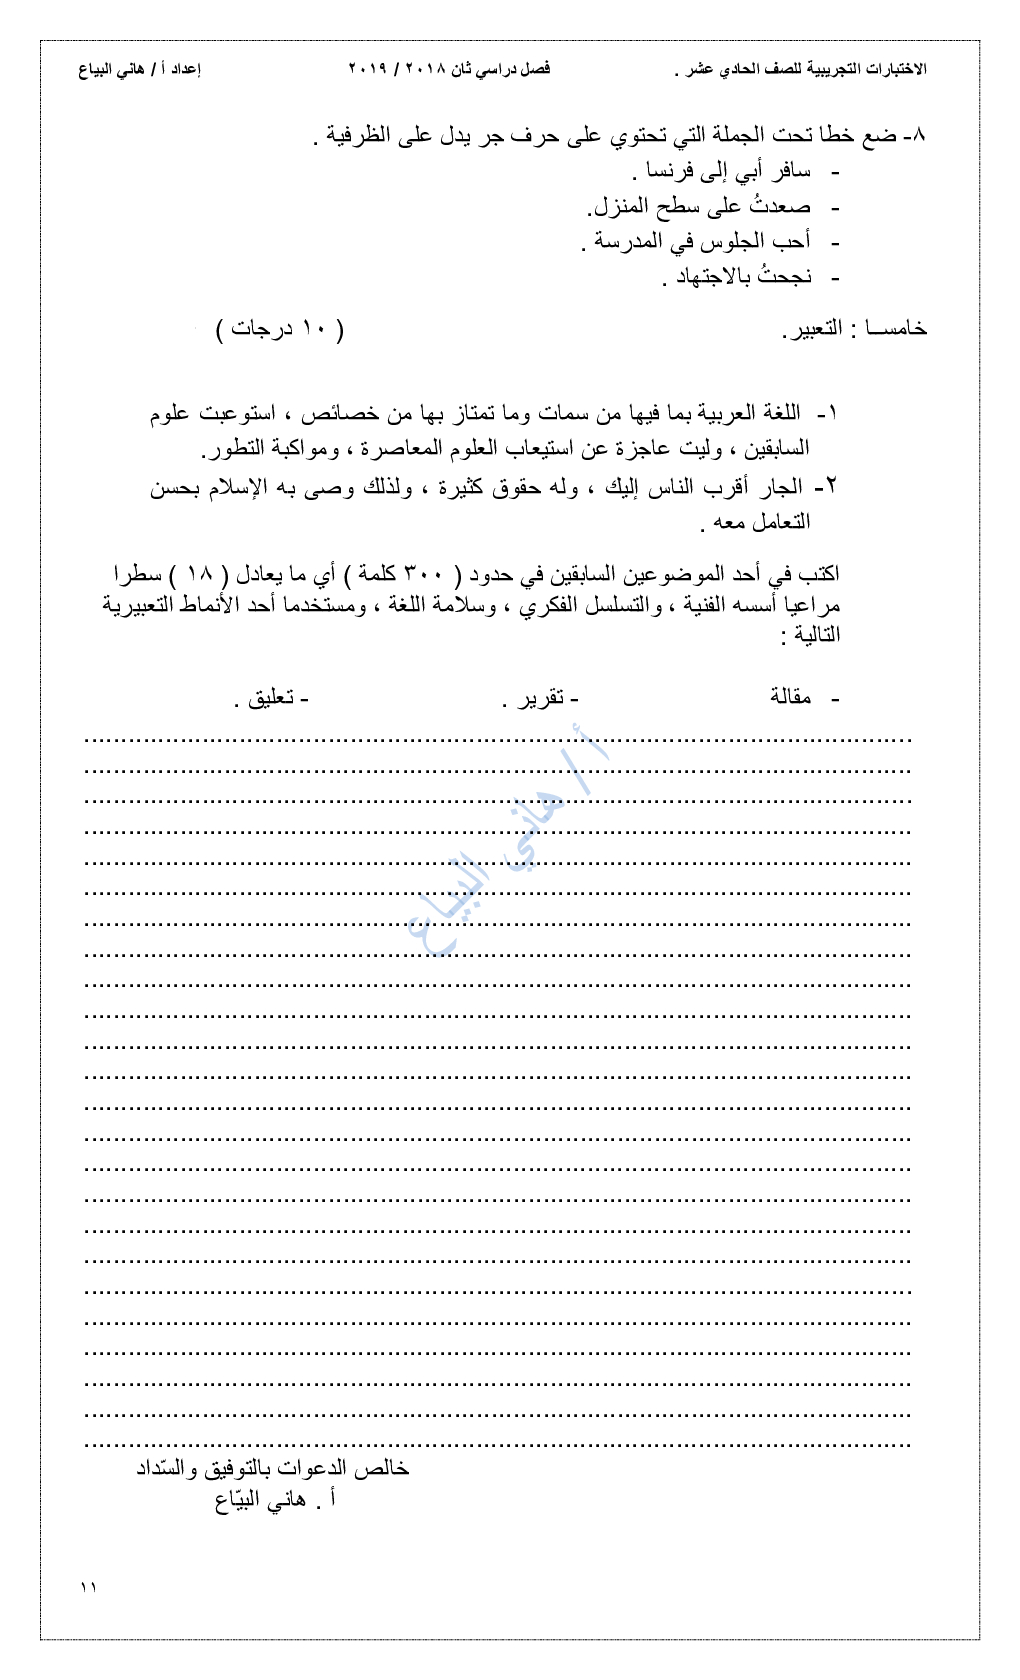 الاختبارات التجريبية للصف الحادي عشر . فصل دراسي ثان ٢٠١٨ / ٢٠١٩ إعداد أ / هاني البياع
٨- ضع خطا تحت الجملة التي تحتوي على حرف جر يدل على الظرفية .
- سافر أبي إلى فرنسا .
- صعدتُ على سطح المنزل.
- أحب الجلوس في المدرسة .
- نجحتُ بالاجتهاد .
خامســا : التعبير. ( ١٠ درجات )
١- اللغة العربية بما فيها من سمات وما تمتاز بها من خصائص ، استوعبت علوم
السابقين ، وليت عاجزة عن استيعاب العلوم المعاصرة ، ومواكبة التطور.
٢- الجار أقرب الناس إليك ، وله حقوق كثيرة ، ولذلك وصى به الإسلام بحسن
التعامل معه .
اكتب في أحد الموضوعين السابقين في حدود ( ٣٠٠ كلمة ) أي ما يعادل ( ١٨ ) سطرا
مراعيا أسسه الفنية ، والتسلسل الفكري ، وسلامة اللغة ، ومستخدما أحد الأنماط التعبيرية
التالية :
- مقالة - تقرير . - تعليق .
أ / هاني البياع
خالص الدعوات بالتوفيق والسّداد
أ . هاني البيّاع
١١